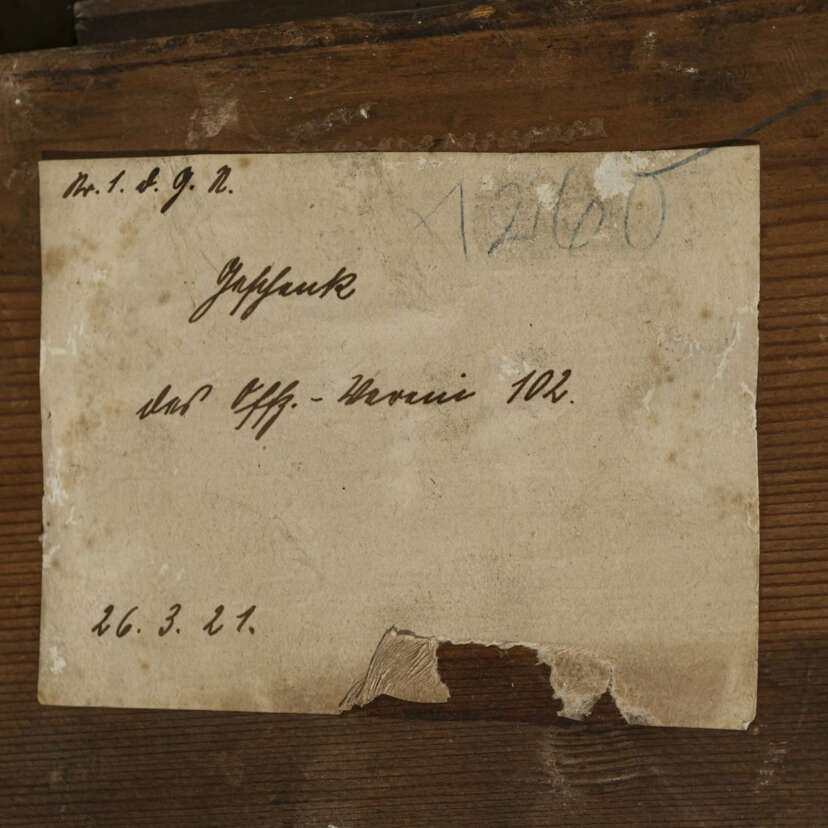 Nr. 1. d. G. R.
1260
Geschenk
des Offz.-Verein 102.
26. 3. 21.